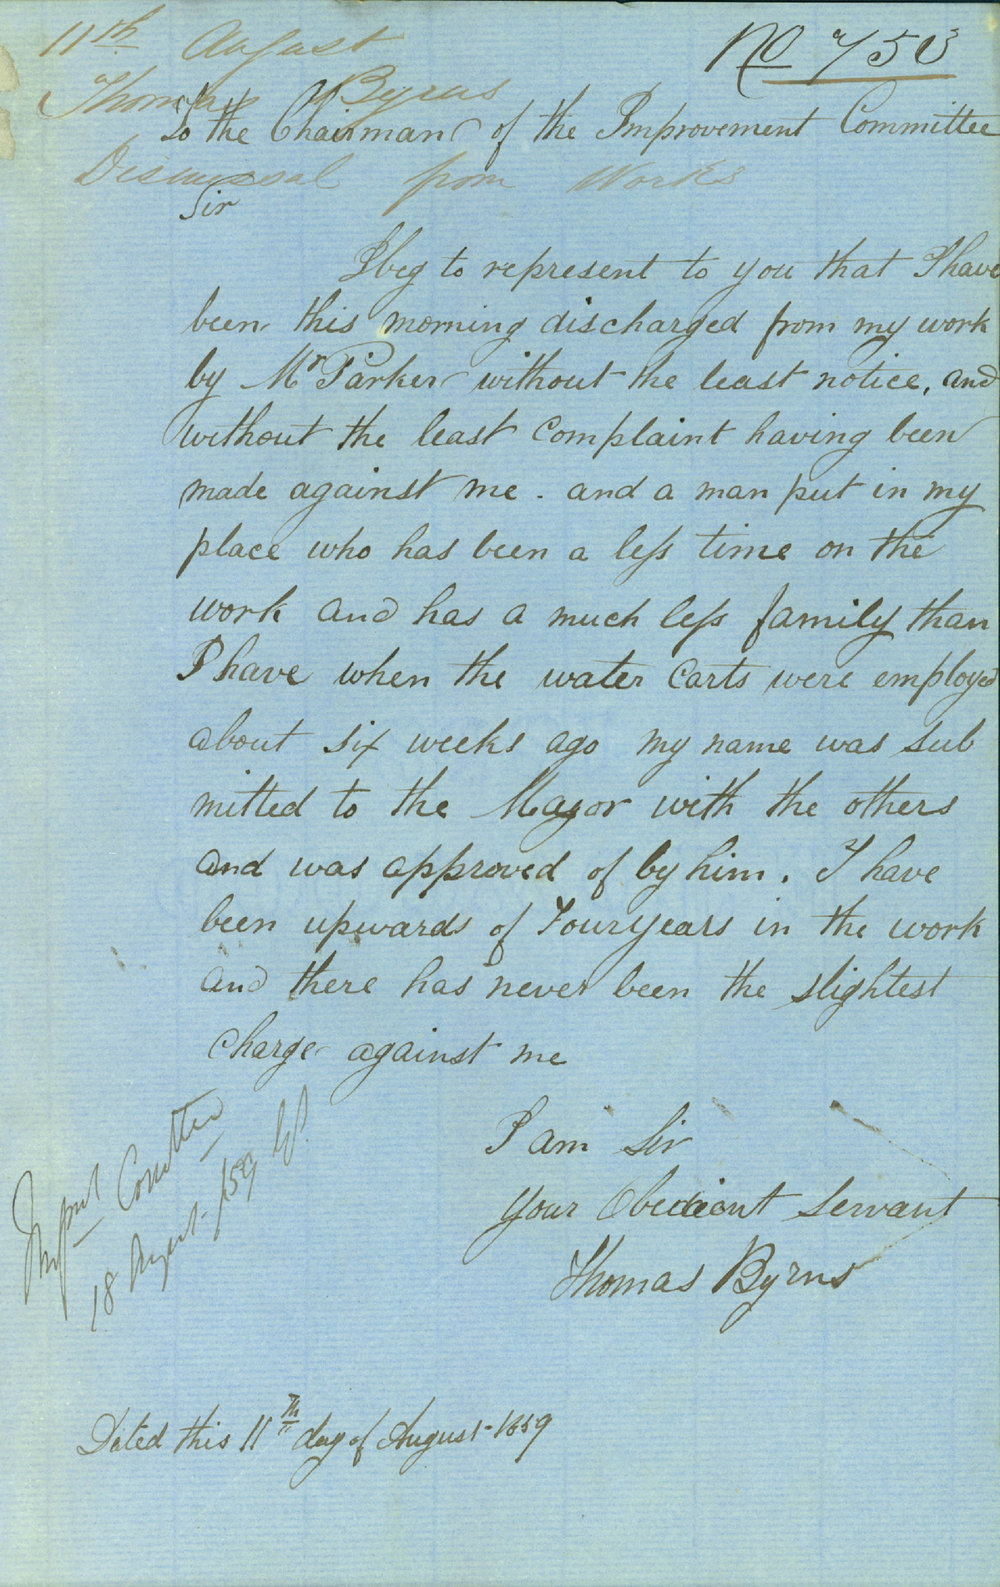 11th August
No 753
Thomas Byrns
To the Chairman of the Improvement Committee
Dismissal from Works
Sir
I beg to represent to you that I have
been this morning discharged from my work
by Mr Parker without the least notice, and
without the least complaint having been
made against me. and a man put in my
place who has been a less time on the
work and has a much less family than
I have when the water carts were employed
about six weeks ago my name was sub
mitted to the Mayor with the others
and was approved of by him. I have
been upwards of Four years in the work
and there has never been the slightest
charge against me
I am Sir
Your Obedient Servant
Thomas Byrns
18 August /59
Dated this 11th day of August 1859